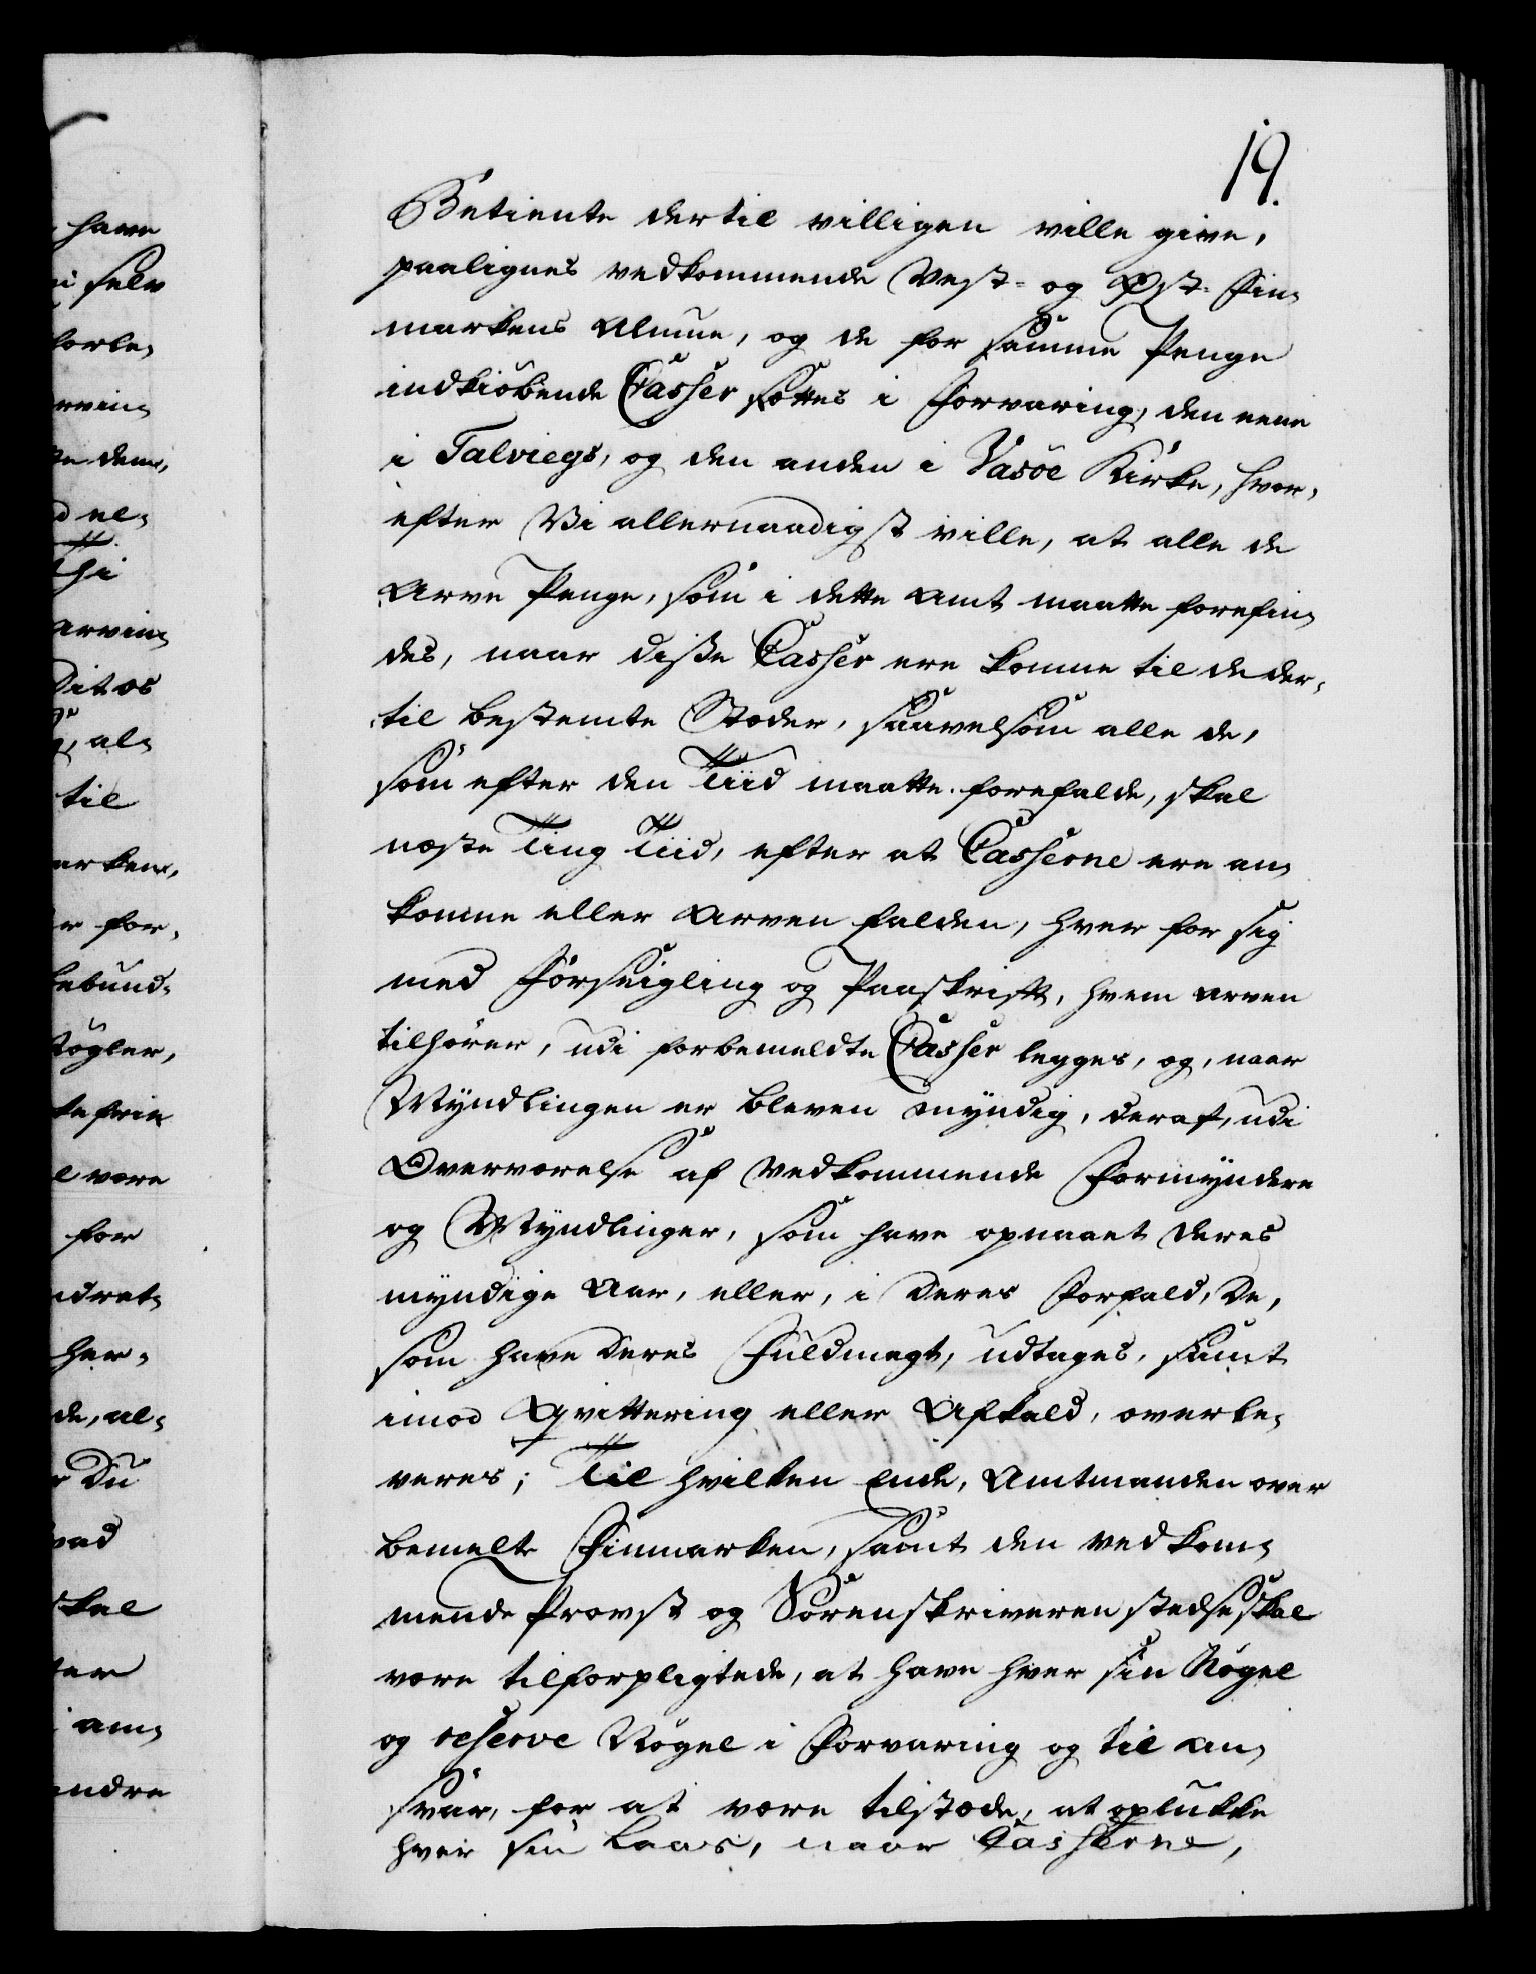 19.
have
i selv
forle,
rvin,
te dem,
d el,
Thi
arvin,
Ditos
, al,
til
arken,
r for,
bebund,
Nøgler,
kefrie
l være
for
ndret,
her,
de, al,
r Du
vad
skal
ter
i am,
andre
Betiente dertil villigen ville give,
paalignes vedkommende Vest- og Øst-Fin,
markens Almue, og de for samme Penge
indkiøbende Casser sættes i Forvaring, den eene
i Talviegs, og den anden i Vasöe Kirke, hvor,
efter Vi allernaadigst ville, at alle de
Arve Penge, som i dette Amt maatte forefin,
des, naar disse Casser ere komne til de der,
til bestemte Stæder, saavelsom alle de,
som efter den Tiid maatte forefalde, skal
næste Ting Tiid, efter at Casserne ere an,
komne eller Arven falden, hver for sig
med Forseigling og Paaskrift, hvem Arven
tilhører, udi forbemeldte Casser legges, og, naar
Myndlingen er bleven myndig, deraf, udi
Overværelse af vedkommende Formyndere
og Myndlinger, som have opnaaet deres
myndige Aar, eller, i deres Forfald, de,
som have deres Fuldmagt, udtages, samt
imod Qvittering eller Afkald, overle,
veres; Til hvilken Ende, Amtmanden over
bemelte Finmarken, samt den vedkom,
mende Provst og Sorenskriveren stedse skal
være tilforpligtede, at have hver sin Nøgel
og reserve Nøgel i Forvaring og til An,
svar, for at være tilstæde, at oplukke
hver sin Laas, naar Casserne,